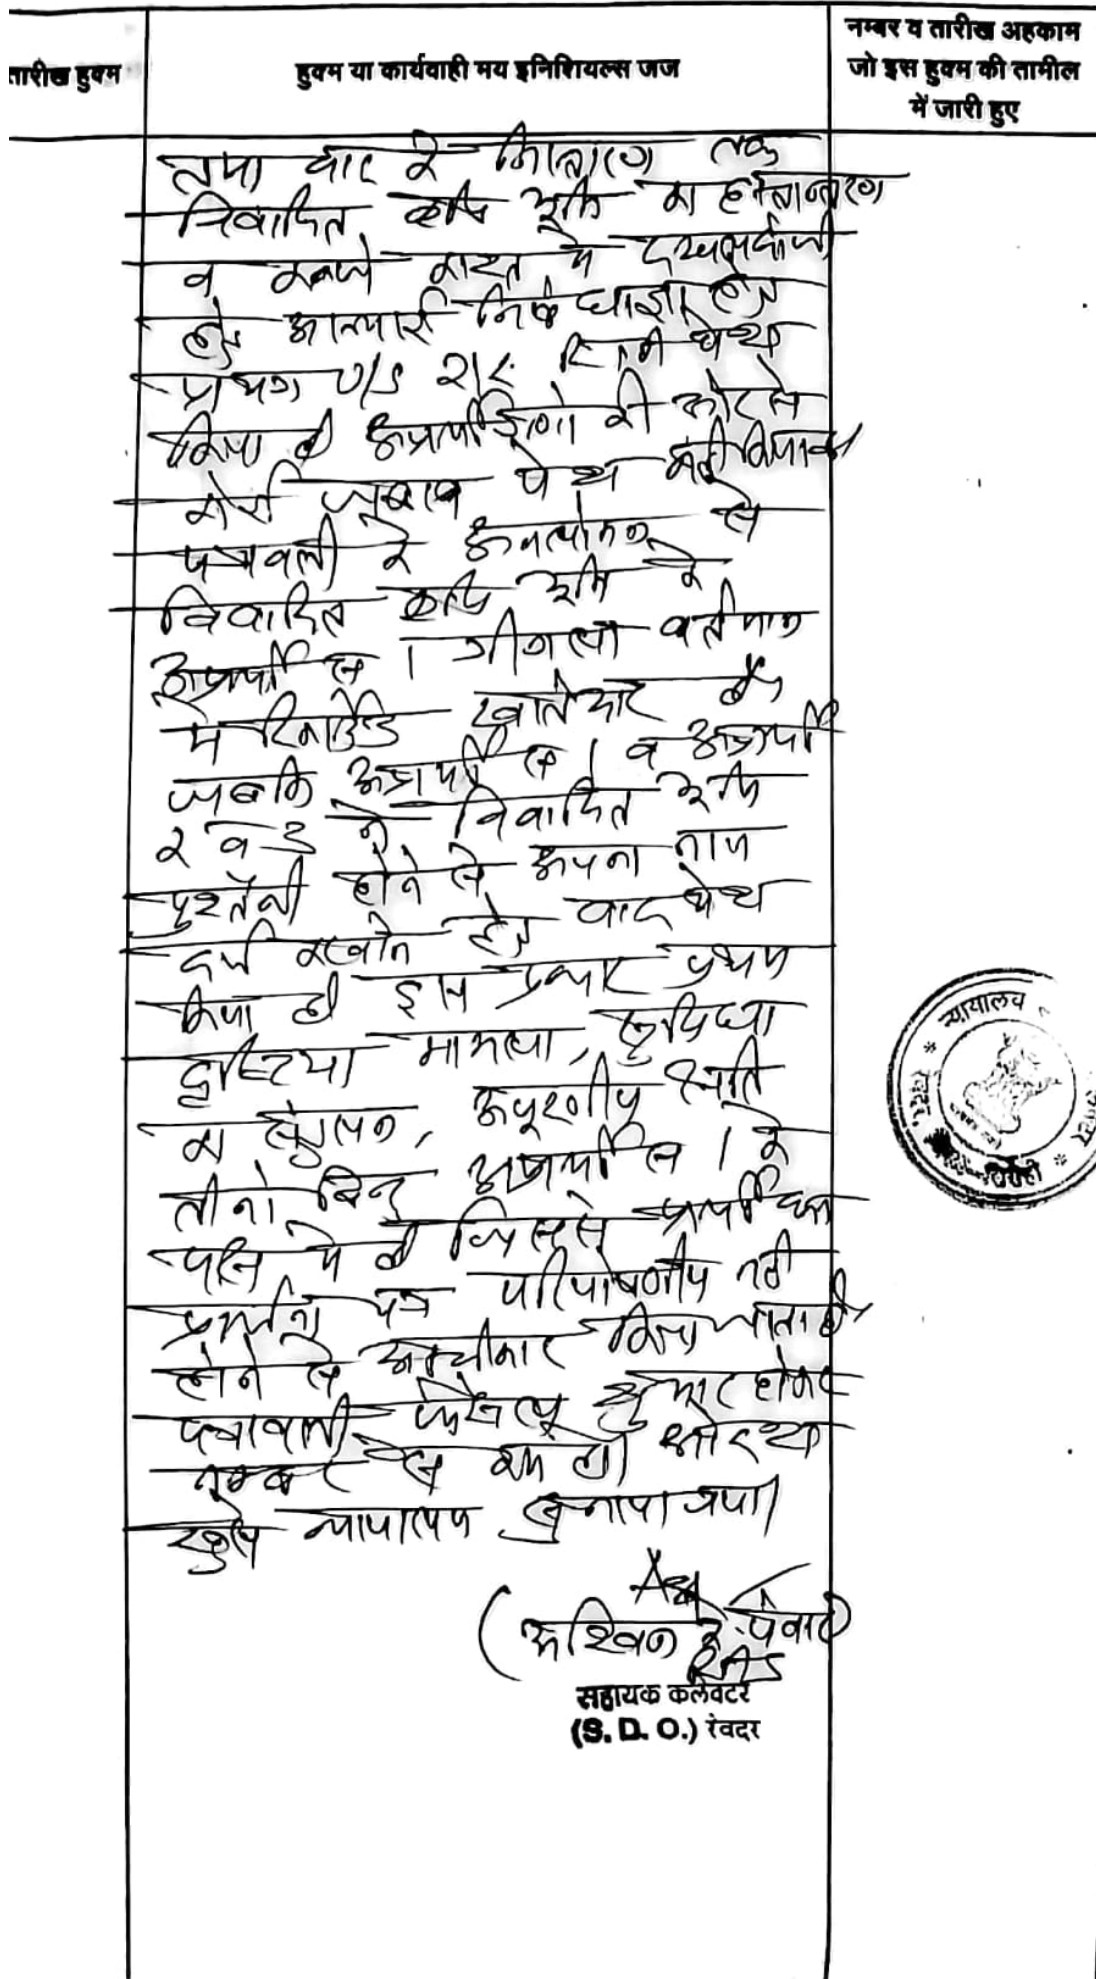 नम्बर व तारीख अहकाम
तारीख हुक्म
हुक्म या कार्यवाही मय इनिशियल्स जज
जो इस हुक्म की तामील
में जारी हुए
तथा वाद के निस्तारण तक
विवादित कृषि भूमि का हस्तान्तरण
व कब्जे काश्त में
हेतु अस्थाई निषेधाज्ञा हेतु
पेश
किया है अप्रार्थीगणो की ओर से
कोई जवाब पेश नही किया है।
पत्रावली के अवलोकन से
विवादित कृषि भूमि के
अप्रार्थी स. 1 वर्तमान
में रिकार्डेड खातेदार है,
जबकि अप्रार्थी स 1 व अप्रार्थी
2 व 3 ने विवादित भूमि
पुश्तैनी होने से अपना नाम
दर्ज करवाने हेतु वाद पेश
किया है इस प्रकार प्रथम
दृष्टया मामला, सुविधा
का संतुलन, अपूरणीय क्षति
तीनो बिन्दु अप्रार्थी स 1 के
पक्ष में है जिससे प्रार्थी का
प्रार्थना पत्र परिपोषणीय नही
होने से अस्वीकार किया जाता है।
पत्रावली फैसल शुमार होकर
नम्बर से कम हो। आदेश
खुले न्यायालय सुनाया गया।
(अश्विन के. पंवार)
सहायक कलेक्टर
(S. D. O.) रेवदर
न्यायालय
सिरोही